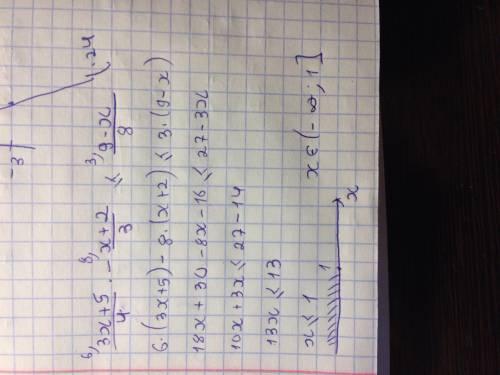 -3
1.24
⁶⁾(3x+5)/4 - ⁸⁾(x+2)/3 ≤ ³⁾(9-x)/8
6·(3x+5)-8·(x+2) ≤ 3·(9-x)
18x+30-8x-16 ≤ 27-3x
10x+3x ≤ 27-14
13x ≤ 13
x ≤ 1
1 x
x∈(-∞; 1]